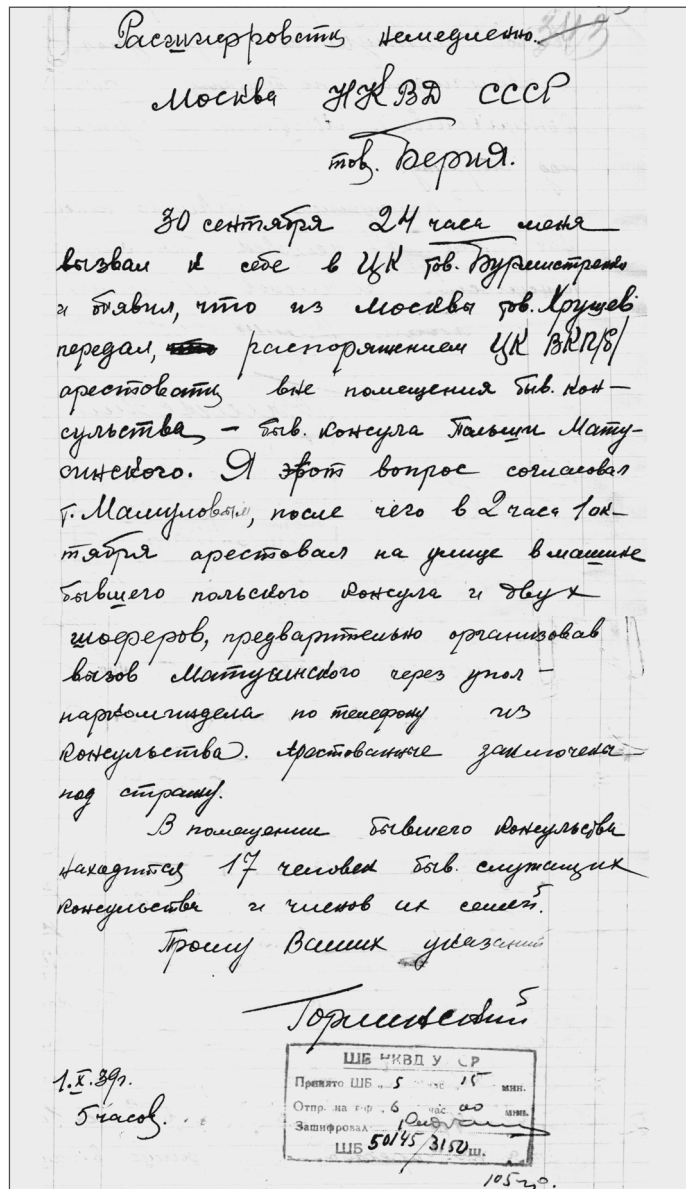 Расшифровать немедленно.
Москва НКВД СССР
тов. Берия.
30 сентября 24 часа меня
вызвал к себе в ЦК тов. Бурмистренко
и об'явил, что из Москвы тов. Хрущев
передал, распоряжением ЦК ВКП/б/
арестовать вне помещения быв. кон-
сульства, - быв. консула Польши Мату-
синского. Я этот вопрос согласовал
т. Мамуловым, после чего в 2 часа 1 ок-
тября арестовал на улице в машине
бывшего польского консула и двух
шоферов, предварительно организовав
вызов Матусинского через упол-
наркоминдела по телефону из
консульства. Арестованные заключены
под стражу.
В помещении бывшего консульства
находится 17 человек быв. служащих
консульства и членов их семей.
Прошу Ваших указаний
Горлинский
1.X.39г.
5 часов.
ШБ НКВД У
Принято ШБ 5 час 15 мин.
Отпр. на 6 час. 00 мин.
Зашифровал
ШБ 50145/3150 ш.